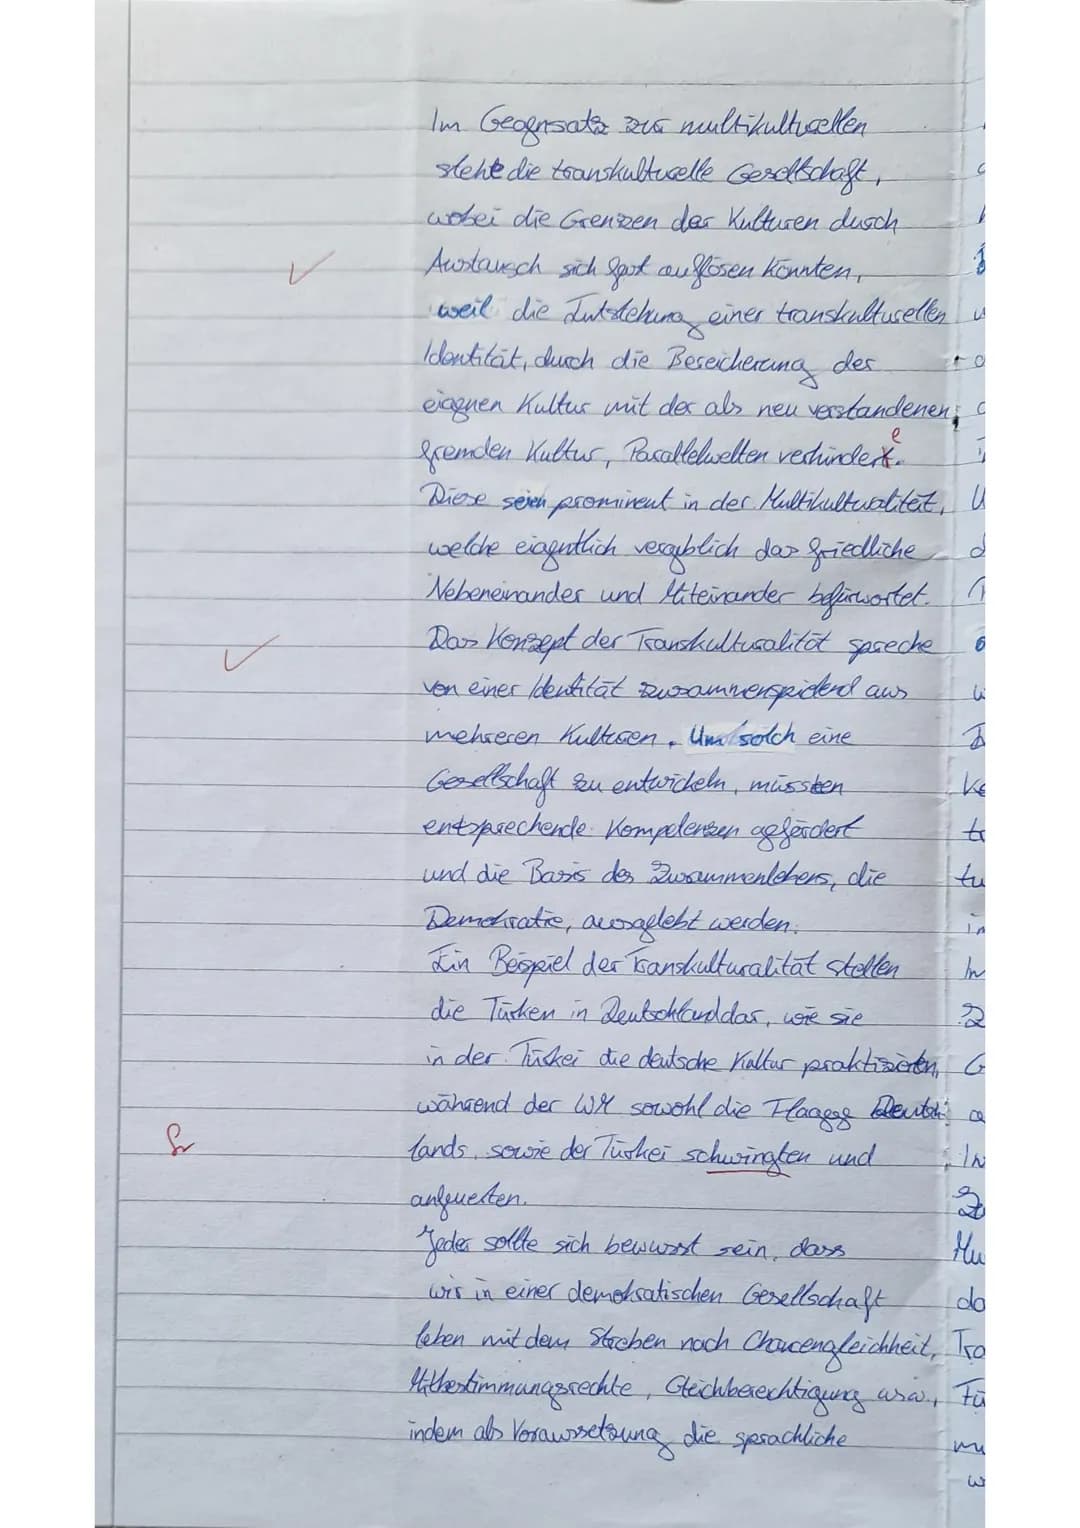 Im Gegensatz zur multikulturellen
stehe die transkulturelle Gesellschaft,
wobei die Grenzen der Kulturen durch
Austausch sich fast auflösen könnten,
weil die Entstehung einer transkulturellen
Identität, durch die Bereicherung der
eigenen Kultur mit der als neu verstandenen
fremden Kultur, Parallelwelten verhindert.
e
Diese seien prominent in der Multikulturalität,
welche eigentlich vergeblich das friedliche
Nebeneinander und Miteinander befürwortet.
Das Konzept der Transkulturalität spreche
von einer Identität zusammenspielend aus
mehreren Kulturen. Um solch eine
Gesellschaft zu entwickeln, müssten
entsprechende Kompetenzen gefördert
und die Basis des Zusammenlebens, die
Demokratie, ausgelebt werden.
Ein Beispiel der Transkulturalität stellen
die Türken in Deutschland dar, wie sie
in der Türkei die deutsche Kultur praktizierten,
während der WM sowohl die Flagge Deutsch
lands, sowie der Türkei schwingten und
anfeuerten.
Jeder sollte sich bewusst sein, dass
wir in einer demokratischen Gesellschaft
leben mit dem Streben nach Chancengleichheit,
Mitbestimmungsrechte, Gleichberechtigung usw.,
indem als Voraussetzung die sprachliche